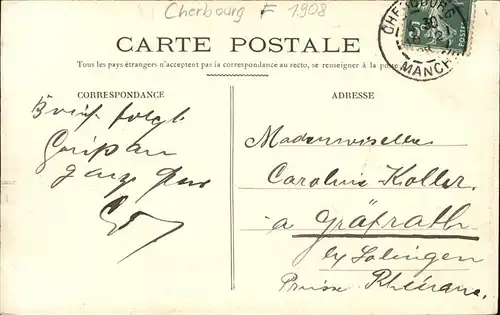 Cherbourg F 1908
CHERBOURG
MANCHE
CARTE POSTALE
Tous les pays étrangers n'acceptent pas la correspondance au recto, se renseigner à la poste
CORRESPONDANCE
ADRESSE
Brief folgt
Mademoiselle
Caroline Koller.
a Gräfrath
by Solingen
Prusse Rhénane.